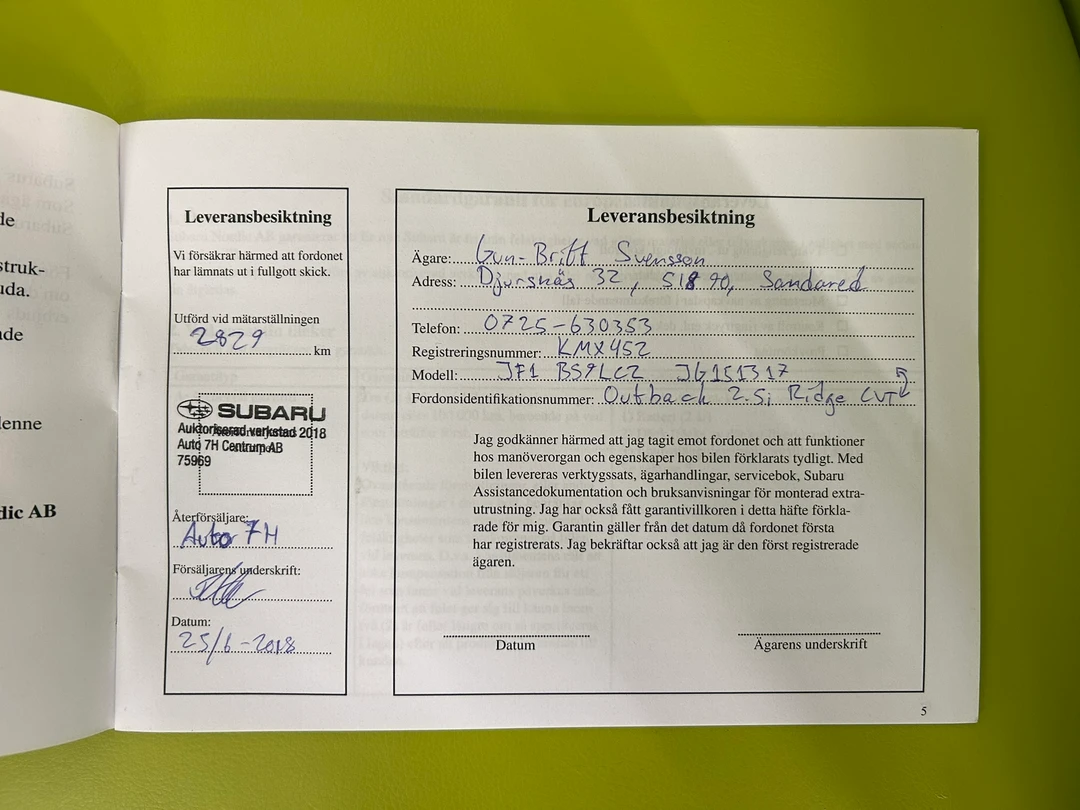 de
struk-
uda.
nde
denne
dic AB
Leveransbesiktning
Vi försäkrar härmed att fordonet
har lämnats ut i fullgott skick.
Utförd vid mätarställningen
2829
km
SUBARU
Auktoriserad verkstad 2018
Auto 7H Centrum AB
75969
Återförsäljare:
Auto 7H
Försäljarens underskrift:
Datum:
25/6-2018
Leveransbesiktning
Ägare: Gun-Britt Svensson
Adress: Djursnäs 32, 518 90, Sandared
Telefon: 0725-630353
Registreringsnummer: KMX452
Modell: JF1 BS9LCZ JG151317
Fordonsidentifikationsnummer: Outback 2.5i Ridge CVT
Jag godkänner härmed att jag tagit emot fordonet och att funktioner
hos manöverorgan och egenskaper hos bilen förklarats tydligt. Med
bilen levereras verktygssats, ägarhandlingar, servicebok, Subaru
Assistancedokumentation och bruksanvisningar för monterad extra-
utrustning. Jag har också fått garantivillkoren i detta häfte förkla-
rade för mig. Garantin gäller från det datum då fordonet första
har registrerats. Jag bekräftar också att jag är den först registrerade
ägaren.
Datum
Ägarens underskrift
5